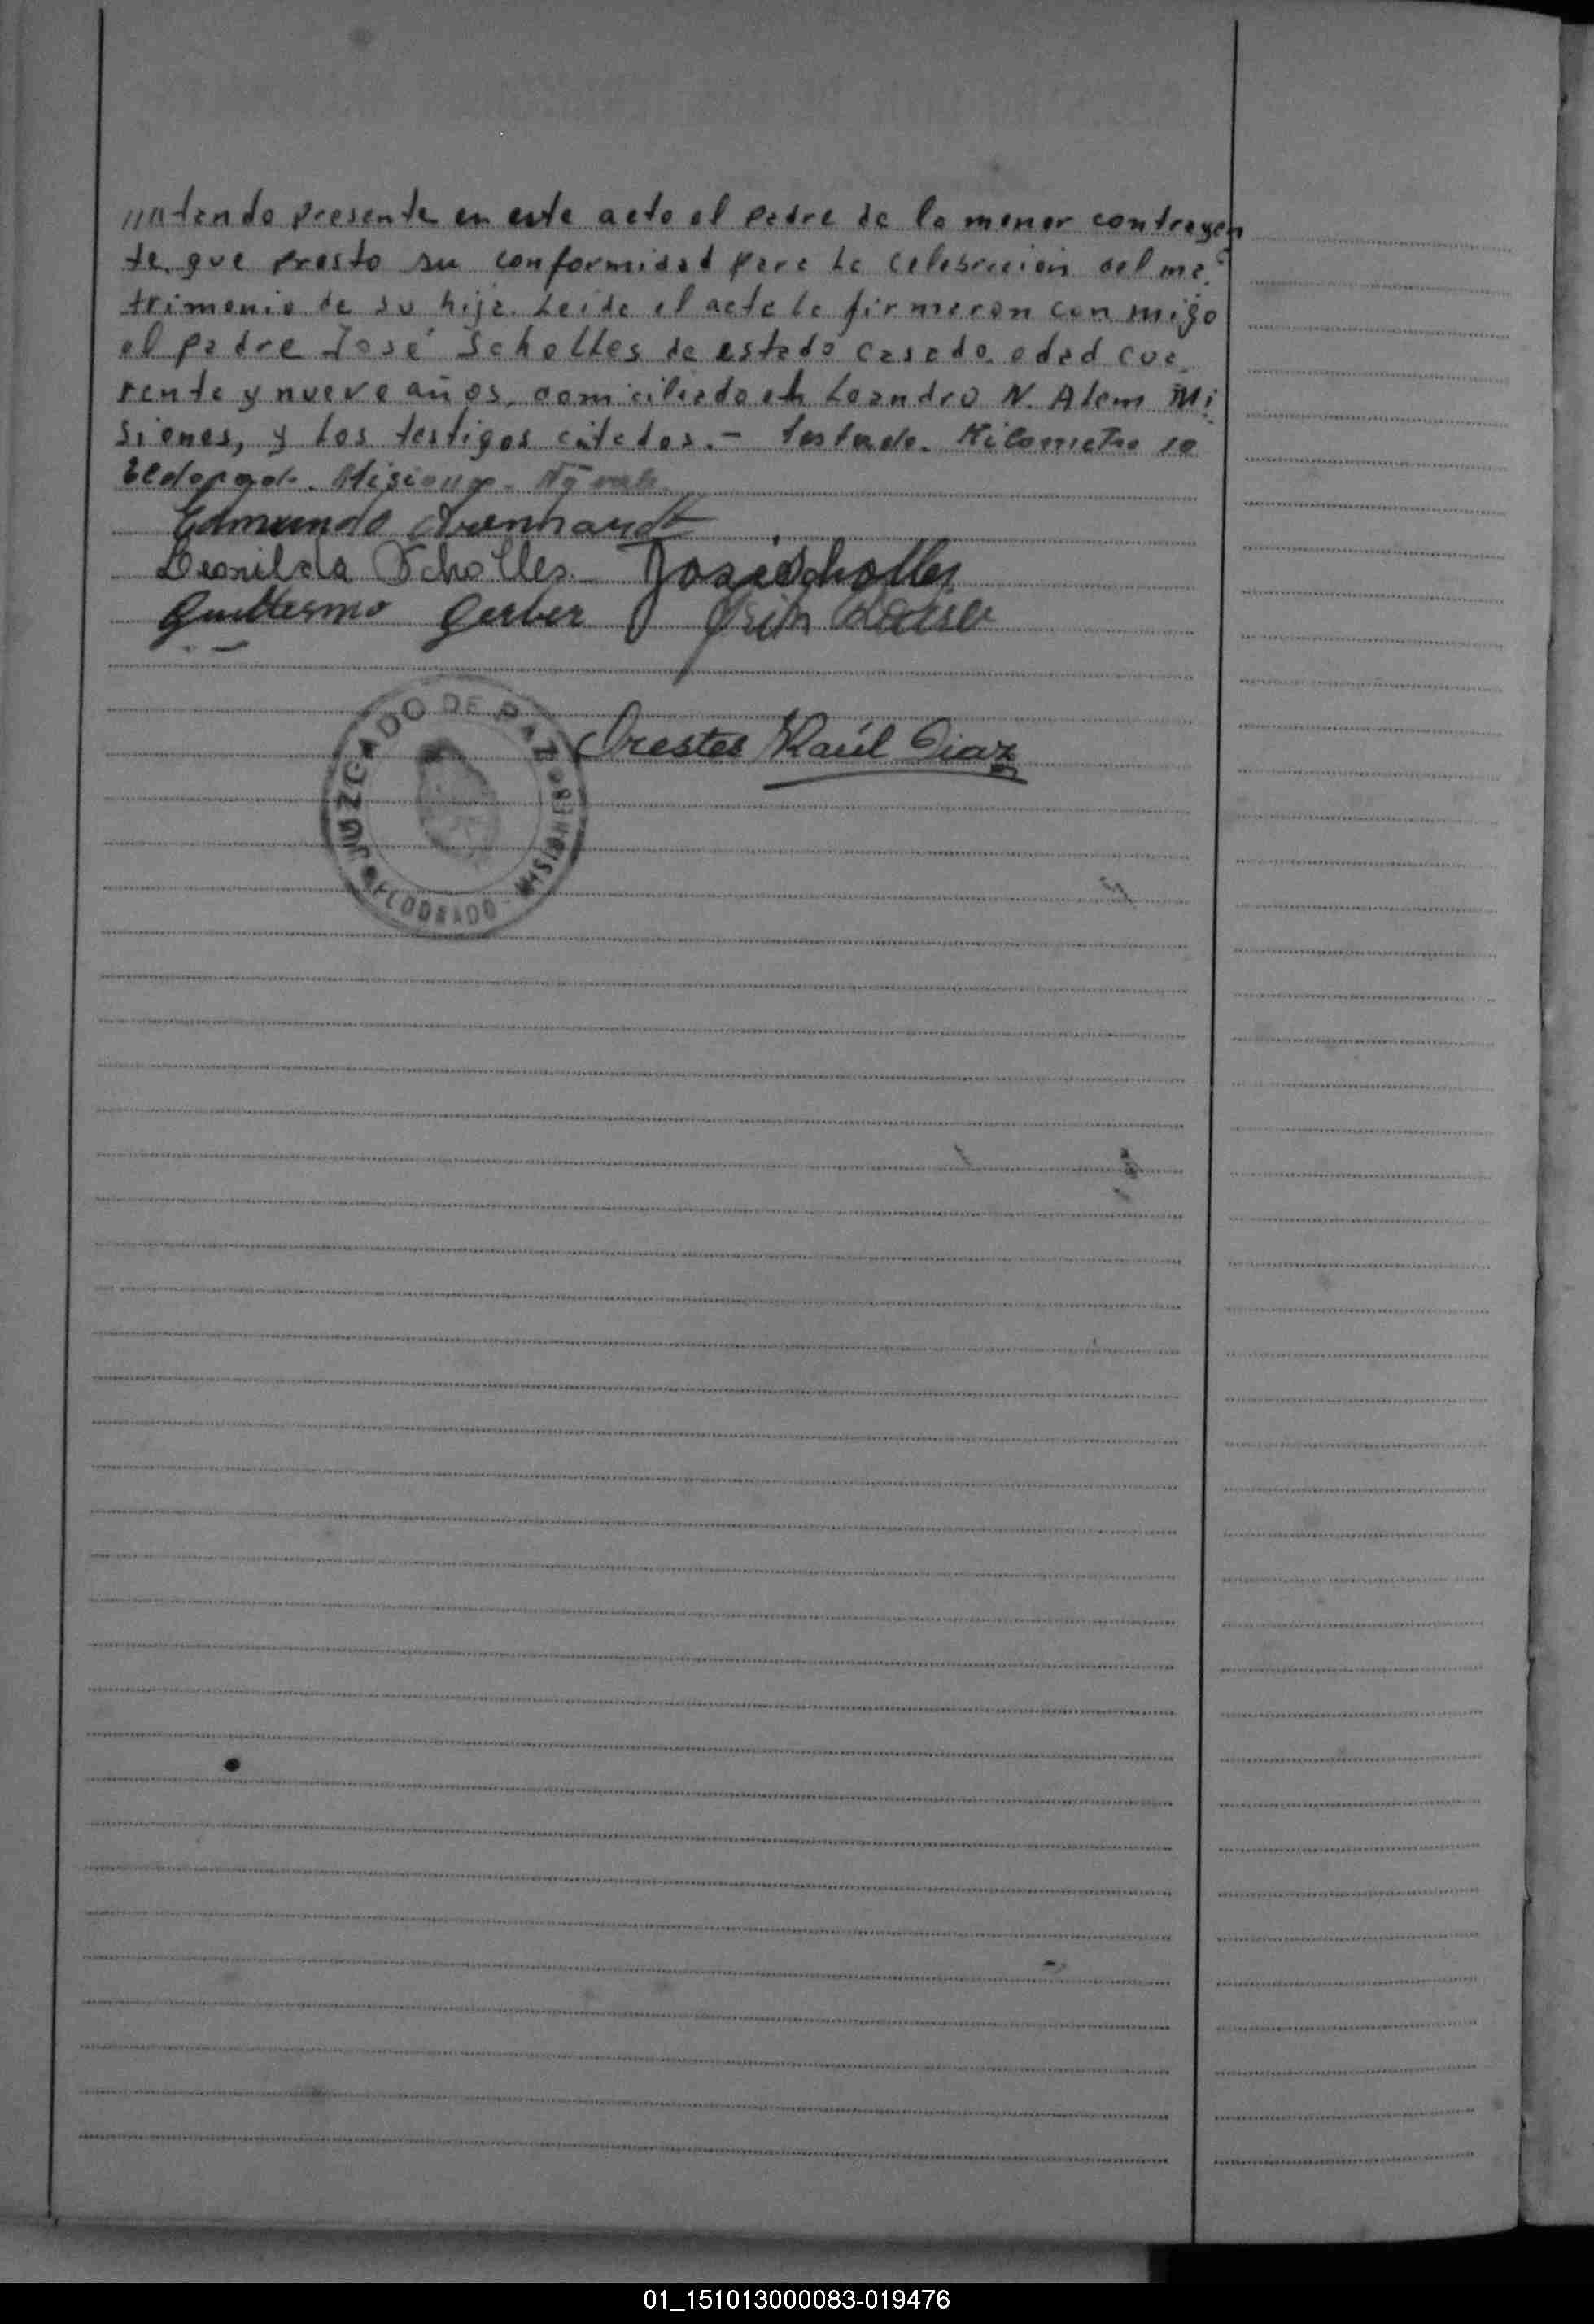 ///atando presente en este acto el padre de la menor contrayen
te, que presto su conformidad para la celebracion del ma-
trimonio de su hija. Leida el acta la firmaron con migo
el padre José Scholles de estado casado, edad cua-
renta y nueve años, domiciliado en Leandro N. Alem Mi-
siones, y los testigos citados.- Testado. Kilometro 10
Eldorado. Misiones. No vale
Edmundo
Leonilda Scholles José Scholles
Guillermo Gerber
Orestes Raúl Diaz
JUZGADO DE PAZ
ELDORADO - MISIONES
01_151013000083-019476